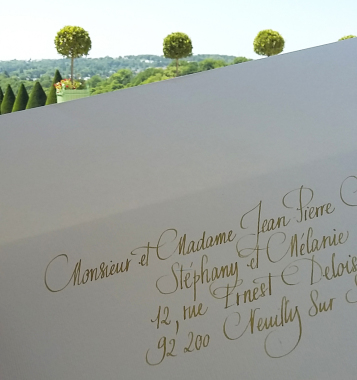 Monsieur et Madame Jean Pierre
Stéphany et Mélanie
12, rue Ernest Delois
92 200 Neuilly Sur